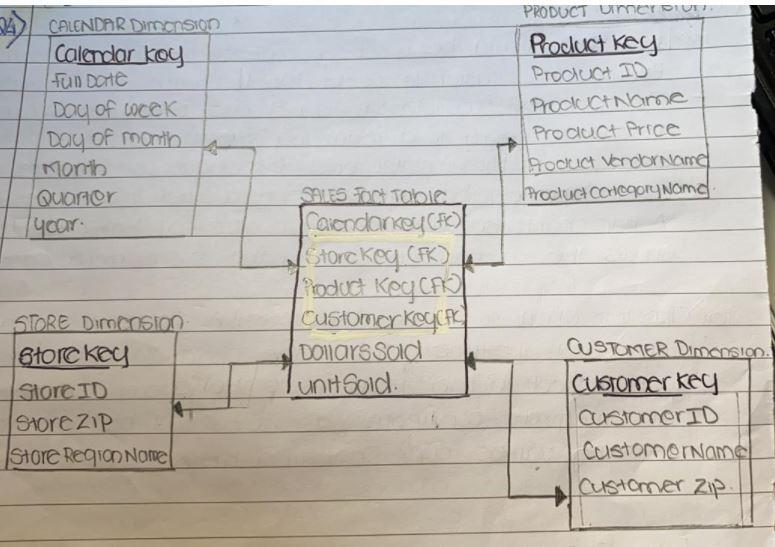 Q4)
CALENDAR Dimension
Calendar Key
Full Date
Day of week
Day of month
Month
Quarter
year.
PRODUCT Dimension.
Product Key
Product ID
ProductName
Product Price
Product VendorName
ProductCategoryName.
SALES Fact Table
CalendarKey (FK)
StoreKey (FK)
Product Key (FK)
CustomerKey (FK)
DollarsSold
unitSold.
STORE Dimension.
StoreKey
StoreID
StoreZIP
StoreRegionName
CUSTOMER Dimension.
CustomerKey
CustomerID
CustomerName
Customer Zip.